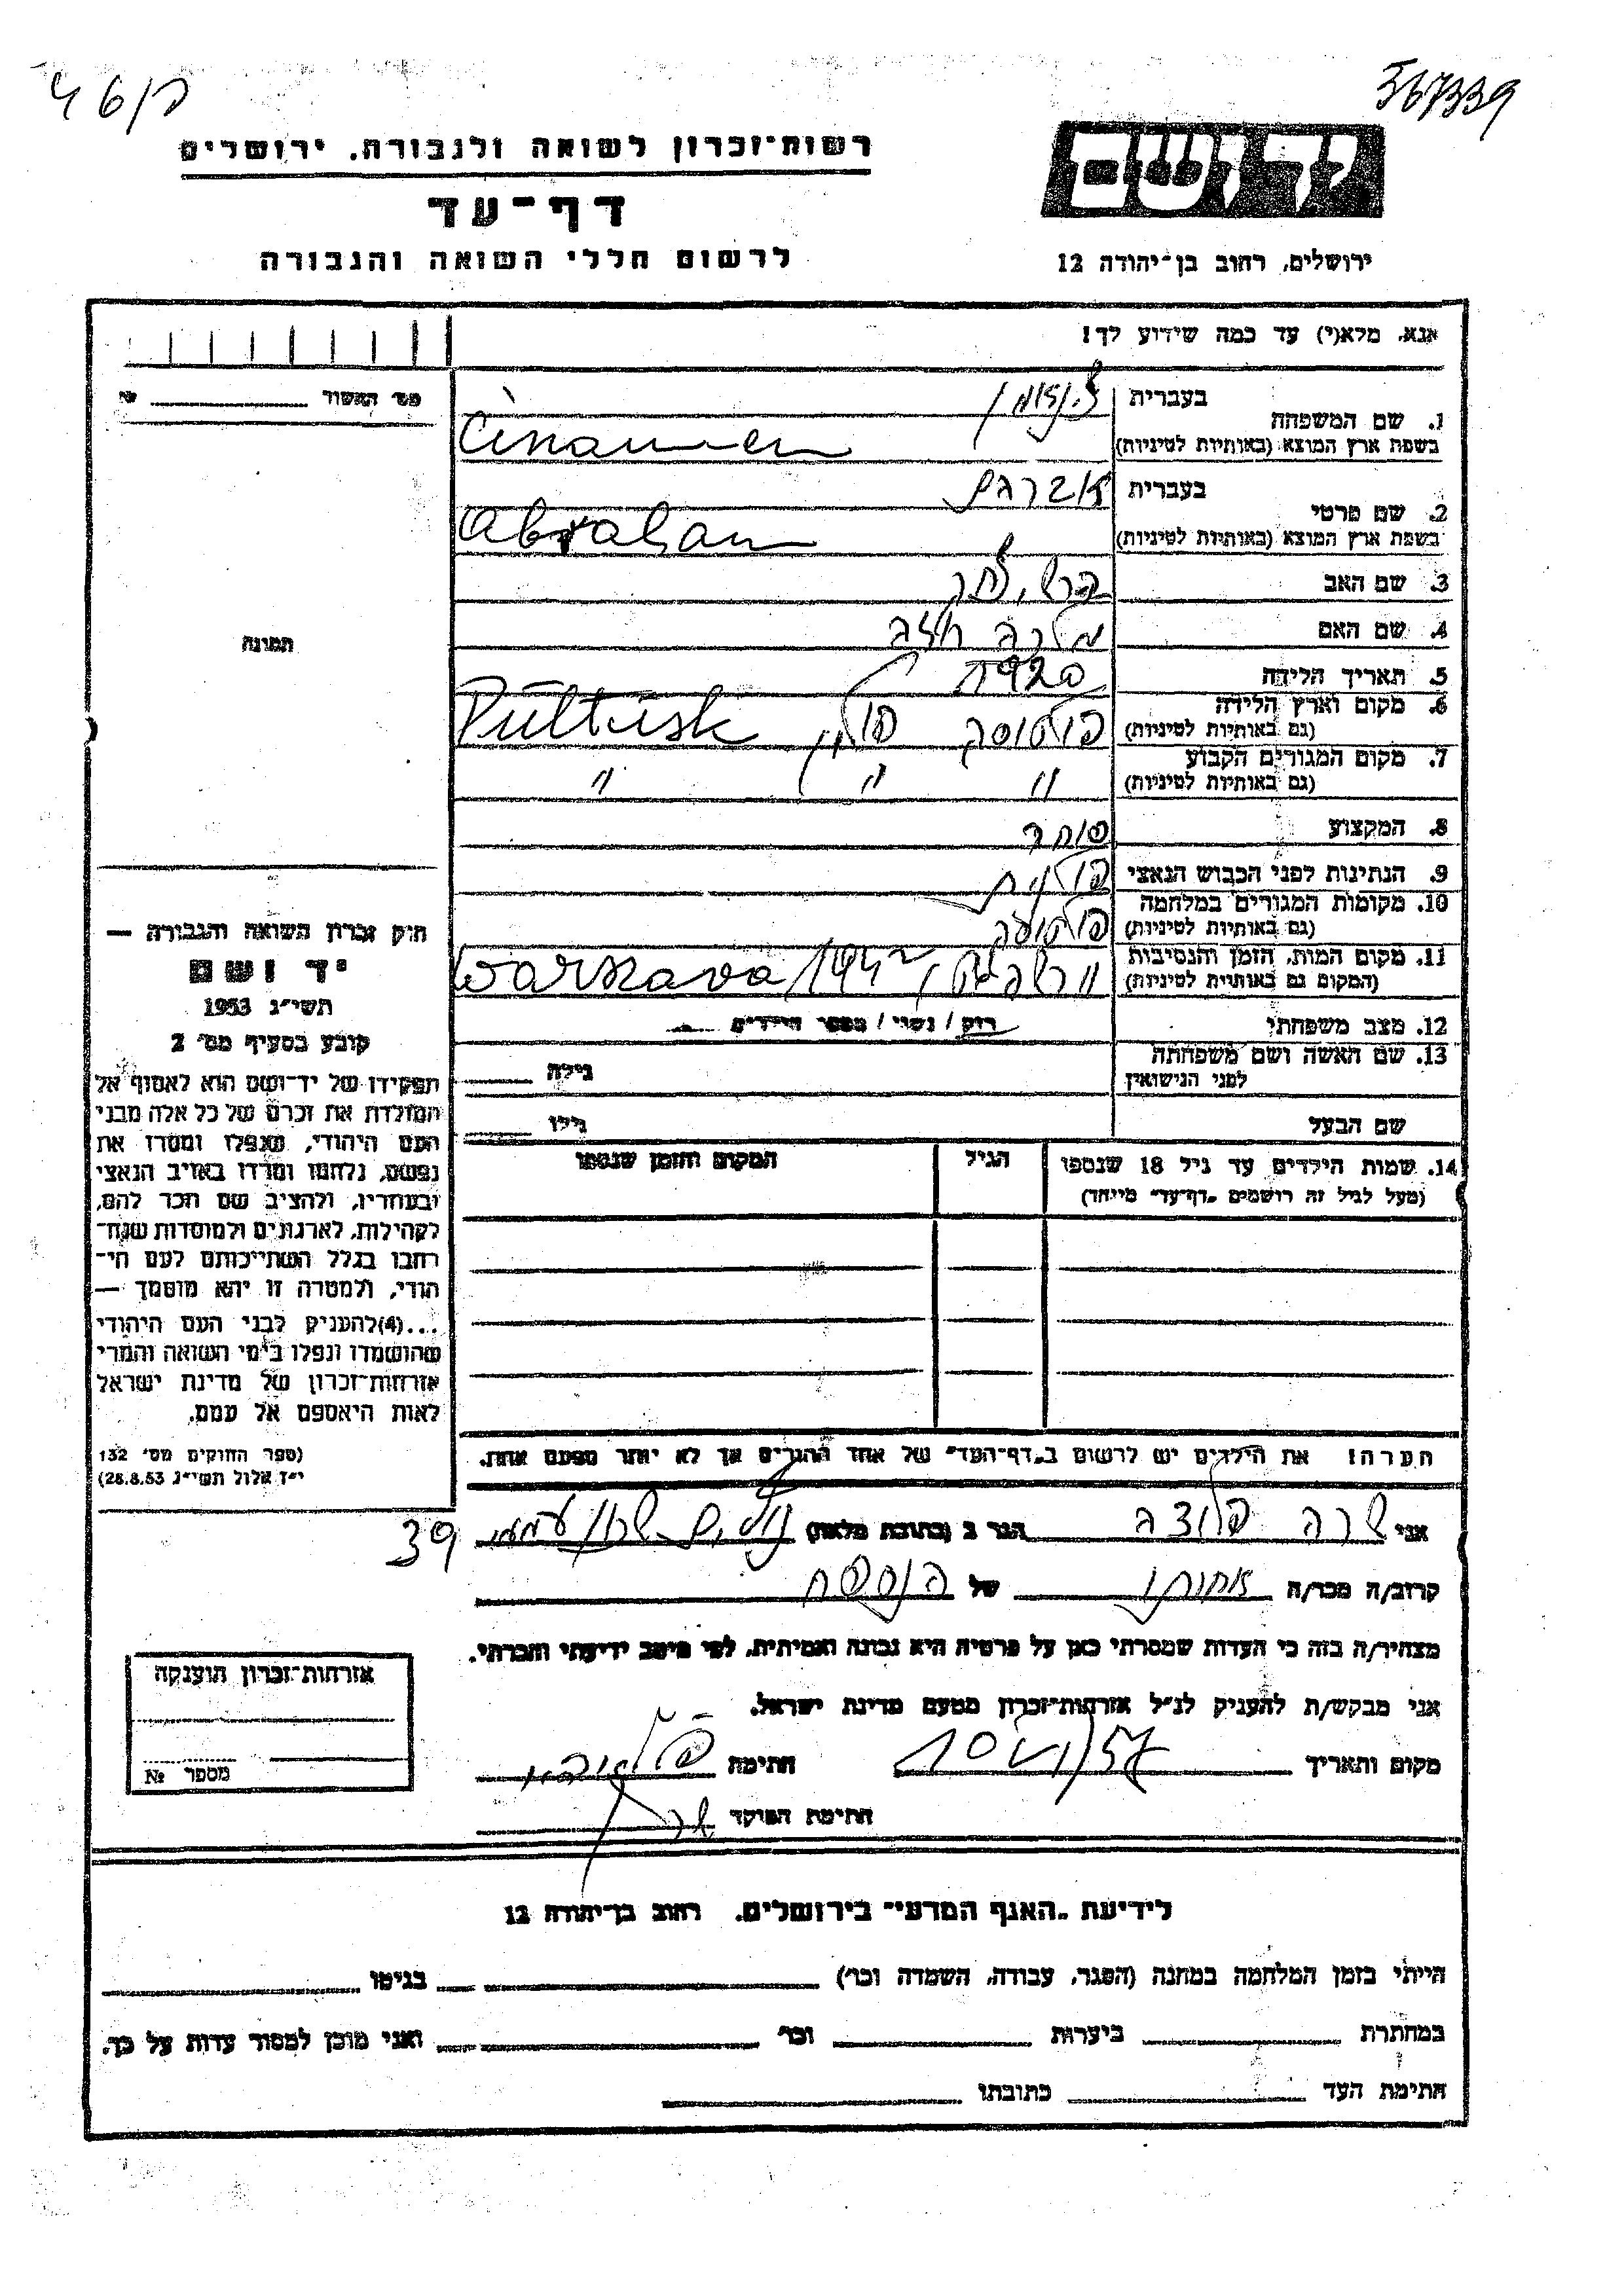 567339
רשות-זכרון לשואה ולגבורה, ירושלים
יד ושם
דף-עד
לרשום חללי השואה והגבורה
ירושלים, רחוב בן-יהודה 12
אנא, מלא(י) עד כמה שידוע לך!
מס׳ האשור №
1. שם המשפחה בעברית
בשפת ארץ המוצא (באותיות לטיניות)
2. שם פרטי בעברית אברהם
בשפת ארץ המוצא (באותיות לטיניות) Abraham
3. שם האב
4. שם האם מלכה
תמונה
5. תאריך הלידה
6. מקום וארץ הלידה
(גם באותיות לטיניות) פולטוסק פולין Pultusk
7. מקום המגורים הקבוע
(גם באותיות לטיניות) " " "
8. המקצוע סוחר
9. הנתינות לפני הכבוש הנאצי פולנית
10. מקומות המגורים במלחמה
(גם באותיות לטיניות)
11. מקום המות, הזמן והנסיבות
(המקום גם באותיות לטיניות) Warszava 1942
12. מצב משפחתי רוק / נשוי / מספר הילדים
13. שם האשה ושם משפחתה
לפני הנישואין גילה
שם הבעל גילו
14. שמות הילדים עד גיל 18 שנספו הגיל המקום והזמן שנספו
(מעל לגיל זה רושמים "דף-עד" מיוחד)
חוק זכרון השואה והגבורה —
יד ושם
תשי"ג 1953
קובע בסעיף מס׳ 2
תפקידו של יד-ושם הוא לאסוף אל
המולדת את זכרם של כל אלה מבני
העם היהודי, שנפלו ומסרו את
נפשם, נלחמו ומרדו באויב הנאצי
ובעוזריו, ולהציב שם וזכר להם,
לקהילות, לארגונים ולמוסדות שנח-
רחבו בגלל השתייכותם לעם הי-
הודי, ולמטרה זו יהא מוסמך —
...(4) להעניק לבני העם היהודי
שהושמדו ונפלו בימי השואה והמרי
אזרחות-זכרון של מדינת ישראל
לאות היאספם אל עמם.
(ספר החוקים מס׳ 132
י"ז אלול תשי"ג 28.8.53)
הערה! את הילדים יש לרשום ב"דף-העד" של אחד ההורים אך לא יותר מפעם אחת.
אני שרה הגר ב (כתובת מלאה) 39
קרוב/ה מכר/ה אחותו של הנספה
מצהיר/ה בזה כי העדות שמסרתי כאן על פרטיה היא נכונה ואמיתית, לפי מיטב ידיעתי והכרתי.
אני מבקש/ת להעניק לנ"ל אזרחות-זכרון מטעם מדינת ישראל.
מקום ותאריך חתימה
חתימת הפוקד
אזרחות-זכרון הוענקה
מספר №
לידיעת "האגף המדעי" בירושלים, רחוב בן-יהודה 12
הייתי בזמן המלחמה במחנה (הסגר, עבודה, השמדה וכו׳) בגיטו
במחתרת ביערות וכו׳ ואני מוכן למסור עדות על כך.
חתימת העד כתובתו